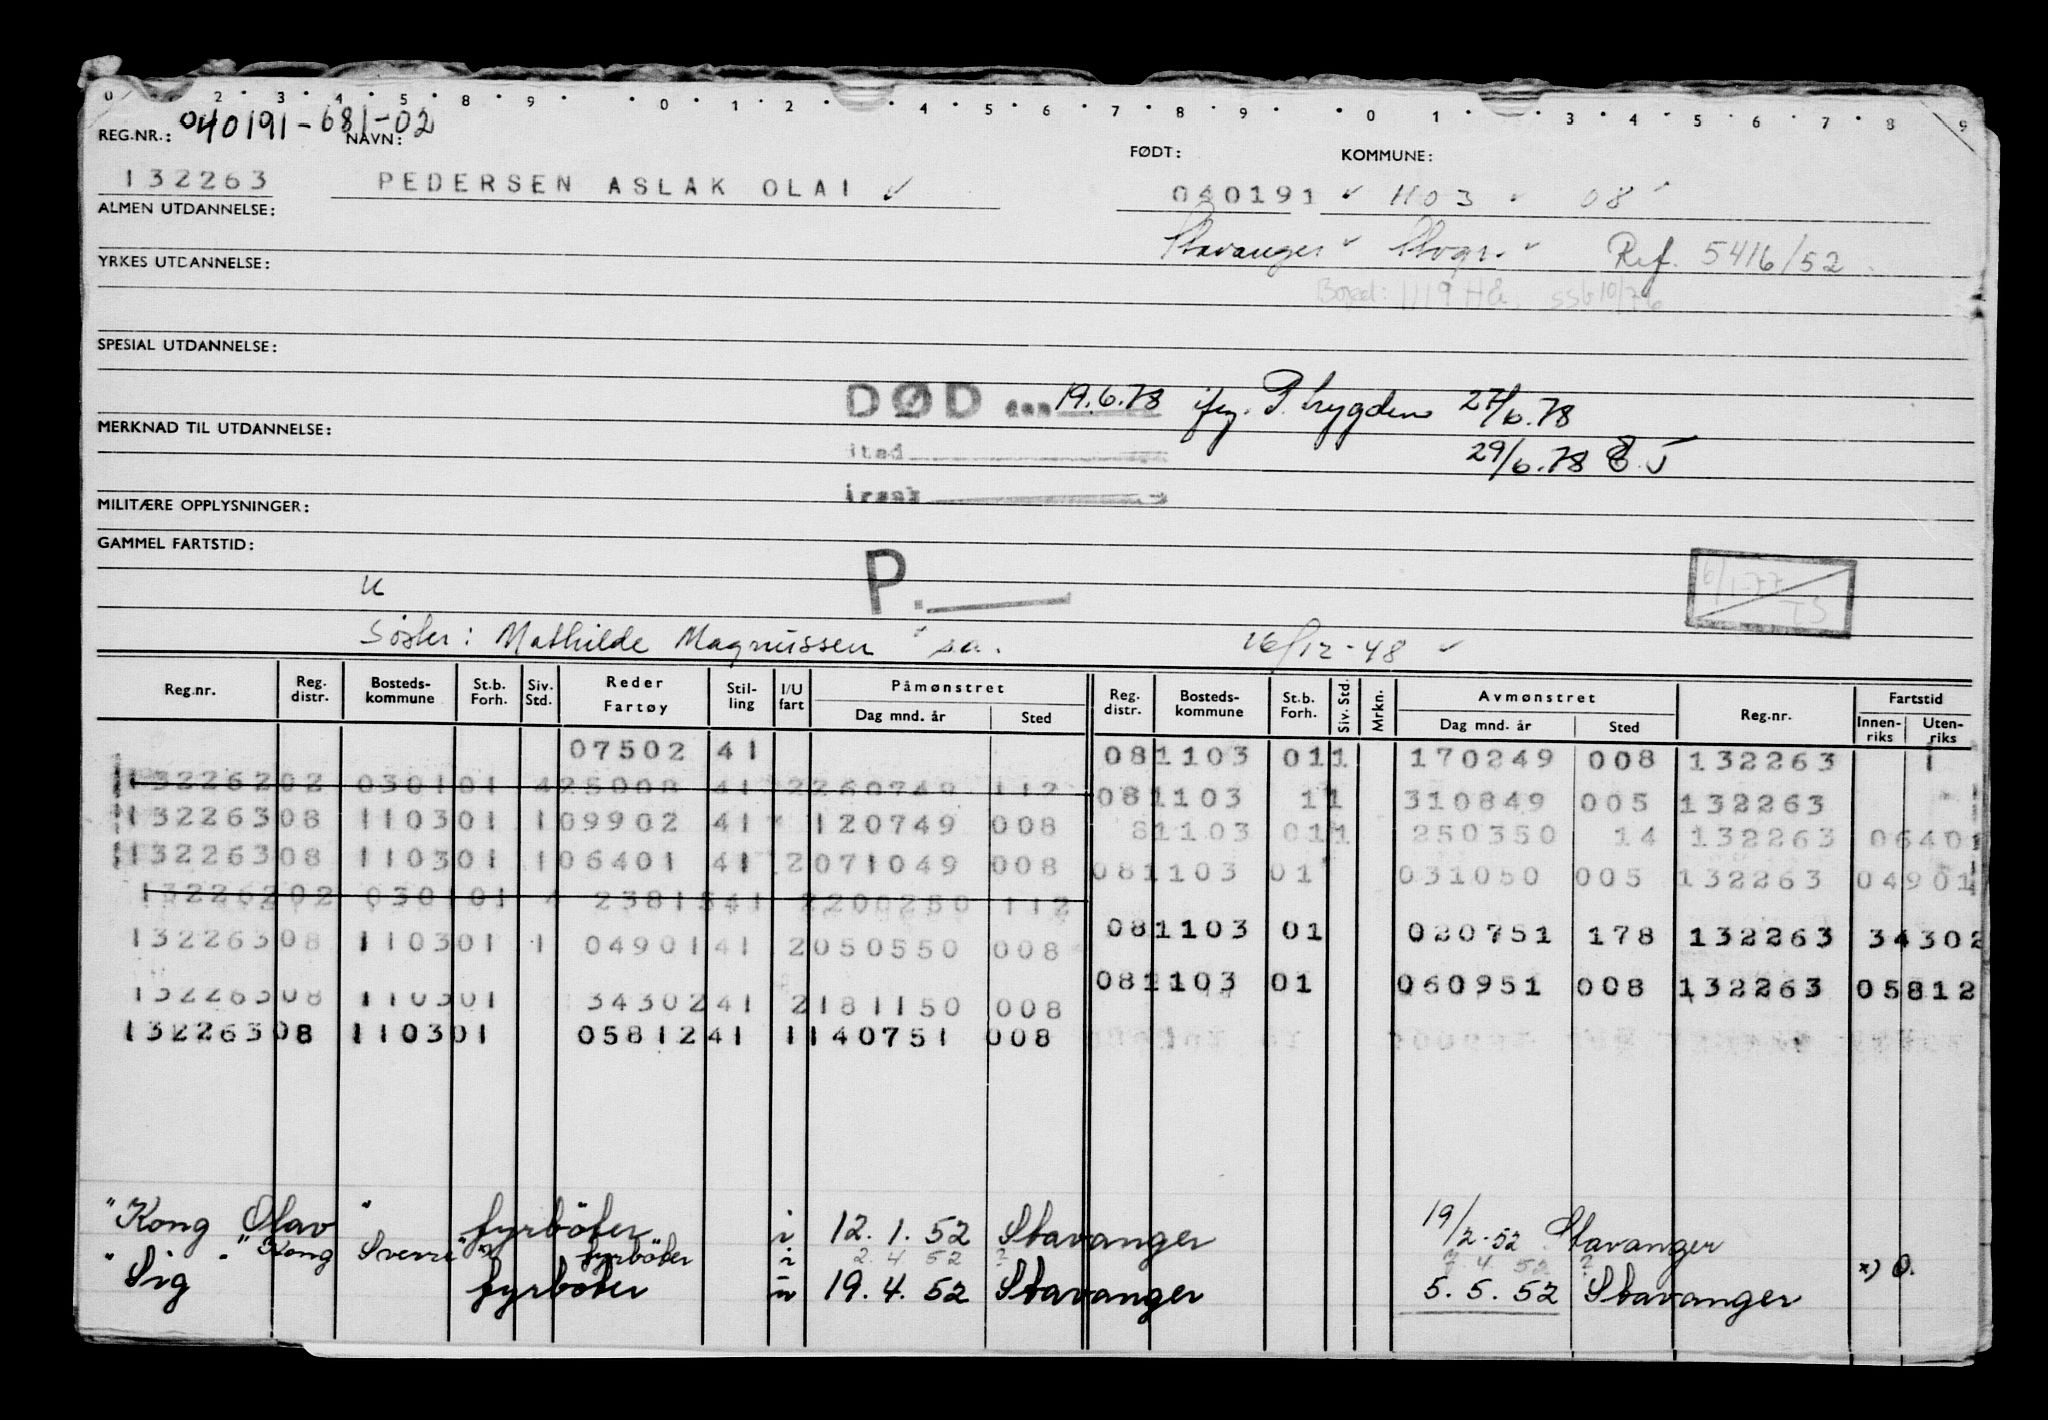 0 2 · 3 · 4 · 5 · 8 · 9 · · 0 · 1 · 2 · 4 · 5 · 6 · 7 · 8 · 9 · · 0 1 · · 3 · 4 · 5 · 6 · 7 · 8 · 9
REG.NR.: 040191-681-02 NAVN: FØDT: KOMMUNE:
132263 PEDERSEN ASLAK OLAI ✓ 040191 ✓ 1103 ✓ 08 ✓
ALMEN UTDANNELSE:
Stavanger ✓ Stvgr. ✓ Ref. 5416/52
YRKES UTDANNELSE:
Bosted: 1119 Hå. SSb 10/76
SPESIAL UTDANNELSE:
DØD den 19.6.78 jfr. P.trygden 27/6.78
MERKNAD TIL UTDANNELSE:
sted 29/6.78
årsak
MILITÆRE OPPLYSNINGER:
GAMMEL FARTSTID:
u P. 6/1-77 TS
Søster: Mathilde Magnussen s.a. 16/12-48 ✓
Reg.nr. Reg. distr. Bosteds-kommune St.b. Forh. Siv. Std. Reder Fartøy Stil-ling I/U fart Påmønstret Dag mnd. år Sted Reg. distr. Bosteds-kommune St.b. Forh. Siv. Std. Mrkn. Avmønstret Dag mnd. år Sted Reg.nr. Fartstid Innen-riks Uten-riks
07502 41 081103 011 170249 008 132263 1
13226202 030101 425008 41 2260749 112 081103 11 310849 005 132263
13226308 110301 109902 41 120749 008 81103 011 250350 14 132263 06401
13226308 110301 106401 41 2071049 008 081103 01 031050 005 132263 04901
13226202 030101 4 2381541 2200250 112
13226308 110301 1 0490141 2050550 008 081103 01 020751 178 132263 34302
13226308 110301 3430241 2181150 008 081103 01 060951 008 132263 05812
13226308 110301 0581241 1140751 008
"Kong Olav" fyrböter i 12.1.52 Stavanger 19/2-52 Stavanger
"Kong Sverre" fyrböter i 2.4 52 ? 7.4 52 ?
"Sig" fyrböter u 19.4.52 Stavanger 5.5.52 Stavanger x) O.